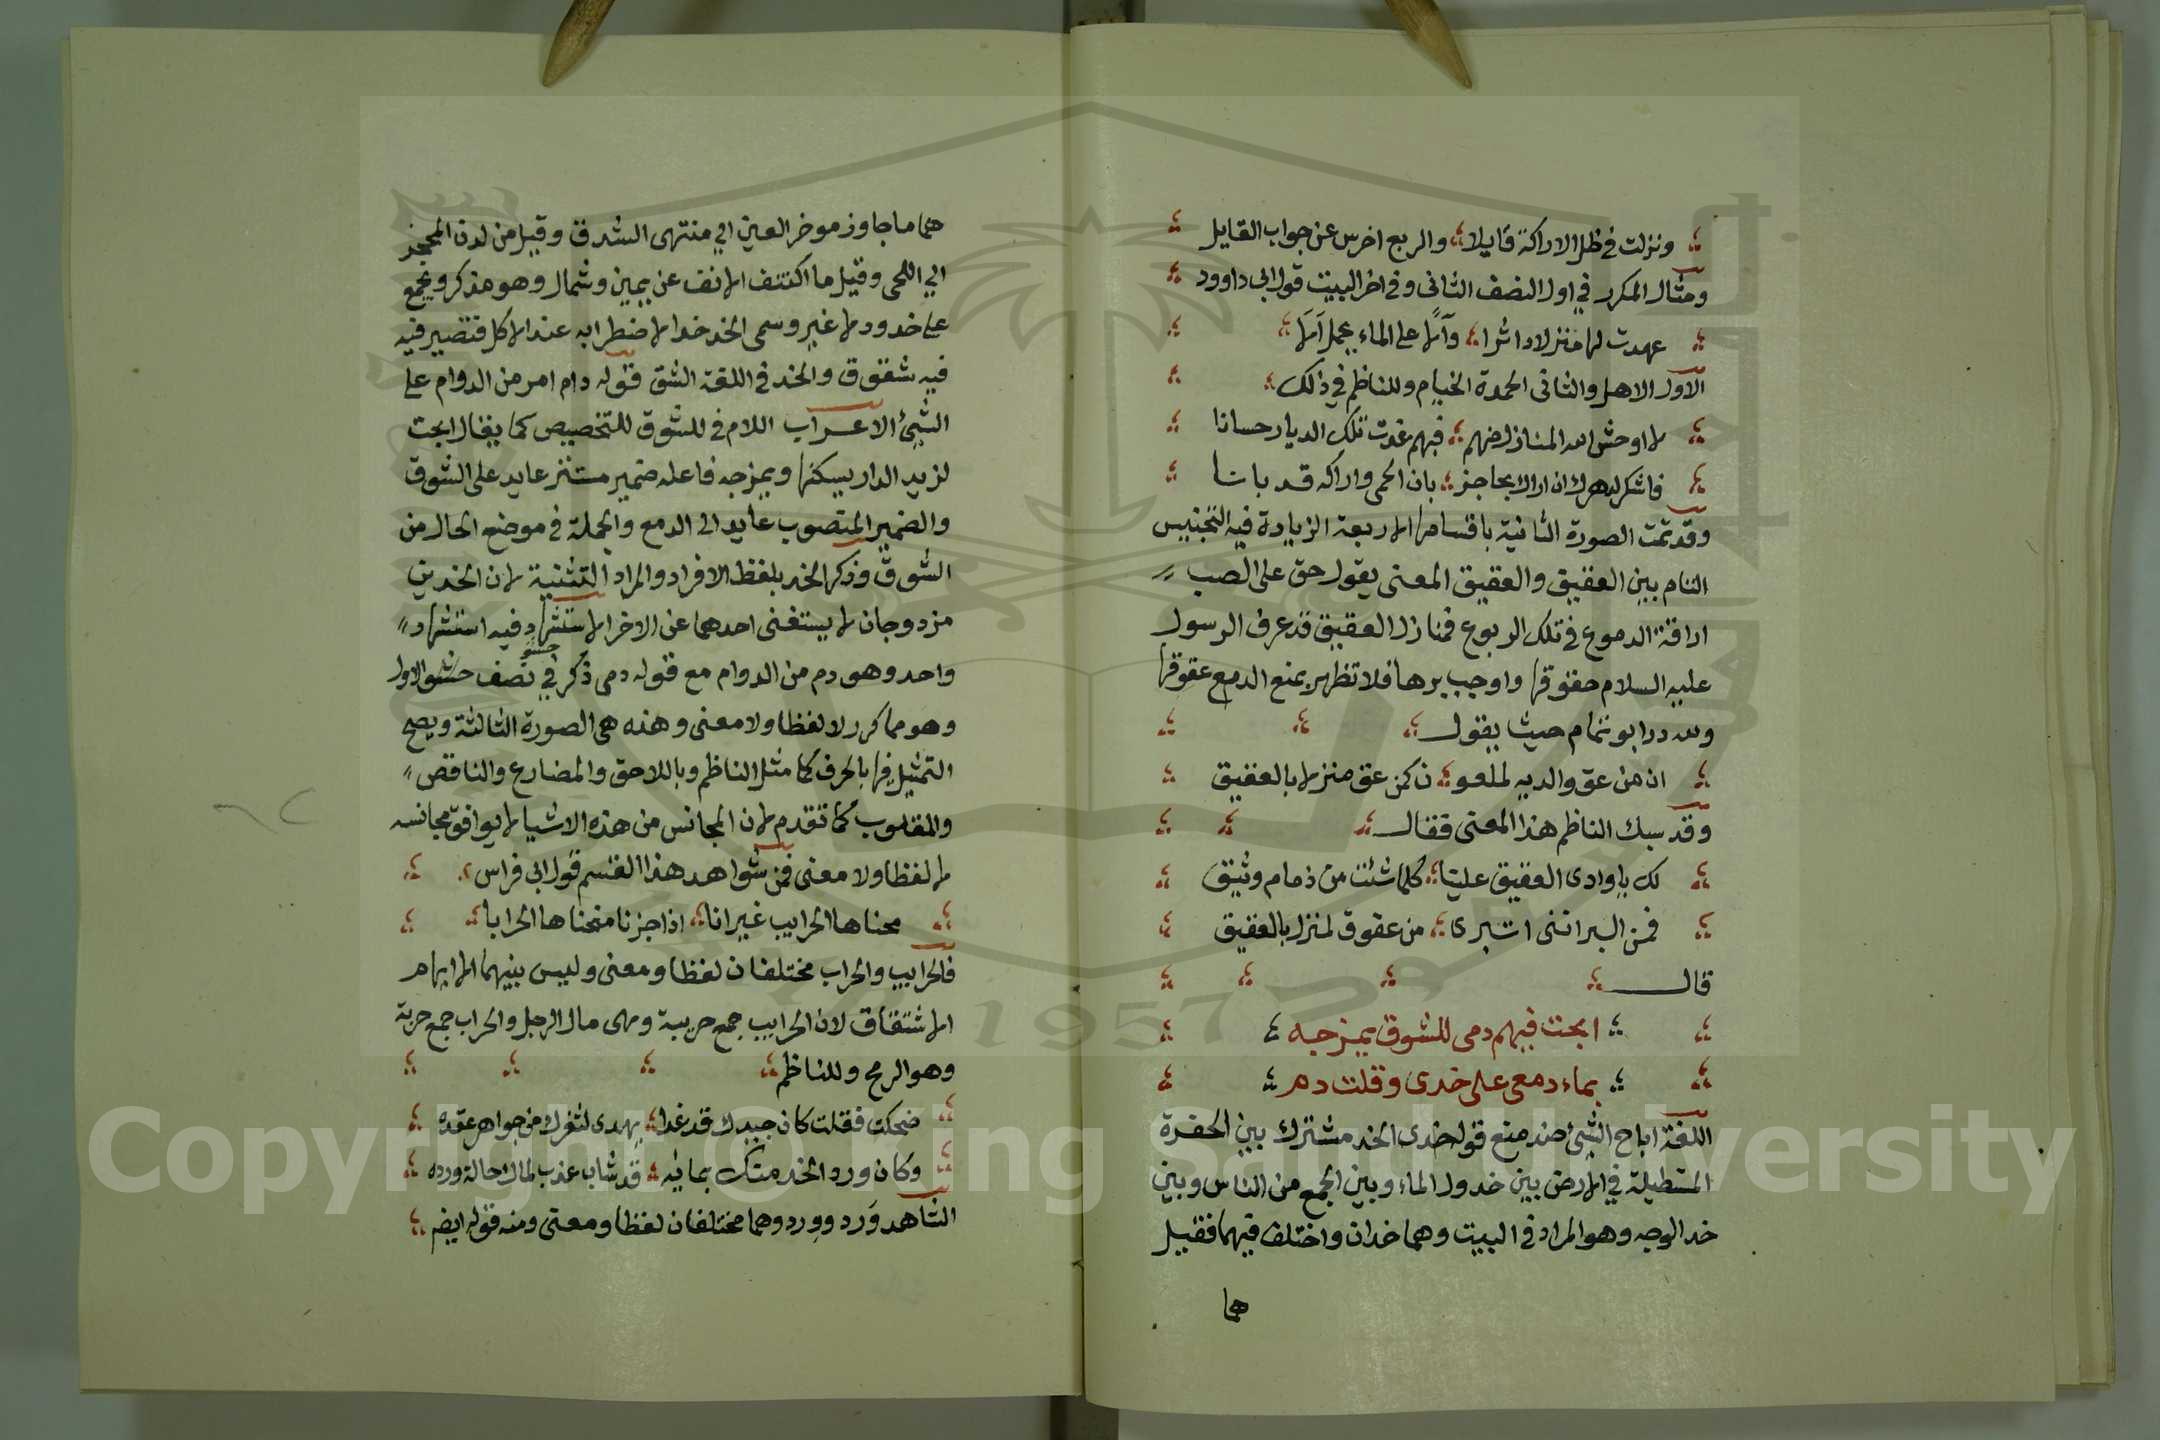 ونزلت في ظل الاراكة قايلا والربع اخرس عن جواب القايل
ومثال المكرر في اول النصف الثاني وفي اخر البيت قول ابي داوود
عهدت لها منزلا داثرا وآلا على الماء يحمل آلا
الاول الاهل والثاني اعمدة الخيام وللناظم في ذلك
لا اوحش الله المنازل منهم فبهم غدت تلك الديار حسانا
فاشكر لدهرك ان اراك بحاجز بان الحمى واراكه قد بانا
وقد تمت الصورة الثانية باقسامها الاربعة الزيادة فيه التجنيس
التام بين العقيق والعقيق المعنى يقول حق على الصب
اراقة الدموع في تلك الربوع فمنازل العقيق قد عرف الرسول
عليه السلام حقوقها واوجب برها فلا تظهر بمنع الدمع عقوقها
ولله در ابو تمام حيث يقول
ان من عق والديه لملعو ن كمن عق منزلا بالعقيق
وقد سبك الناظم هذا المعنى فقال
لك يا وادي العقيق علينا كلما شئت من ذمام وثيق
فمن البر انني اتبرى من عقوق لمنزل بالعقيق
قال
ابحت فيهم دمي للشوق يمزجه
بماء دمعي على خدي وقلت دم
اللغة اباح الشيئ ضد منع قوله خدى الخد مشترك بين الحفرة
المستطيلة في الارض بين خدول الماء وبين الجمع من الناس وبين
خد الوجه وهو المراد في البيت وهما خدان واختلف فيهما فقيل
هما
هما ما جاوز موخر العين الي منتهى الشدق وقيل من لدن المحجر
الي اللحى وقيل ما اكتنف الانف عن يمين وشمال وهو مذكر ويجمع
على خدود لا غير وسمى الخد خدا لاضطرابه عند الاكل فتصير فيه
فيه شقوق والخد في اللغة الشق قوله دام امر من الدوام على
الشيئ الاعراب اللام في للشوق للتخصيص كما يقال ابحت
لزيد الدار يسكنها ويمزجه فاعله ضمير مستتر عايد على الشوق
والضمير المنصوب عايد الى الدمع والجملة في موضع الحال من
الشوق وذكر الخد بلفظ الافراد والمراد التثنية لان الخدين
مزدوجان لا يستغنى احدهما عن الاخر الاستشهاد فيه استشهاد
واحد وهو دم من الدوام مع قوله دمى ذكر في حشو نصف حشو الاول
وهو مما كرر لا لفظا ولا معنى وهذه هي الصورة الثالثة ويصح
التمثيل فيها بالحرف كما مثل الناظم وباللاحق والمضارع والناقص
والمقلوب كما تقدم لان المجانس من هذه الاشيا لا يوافق مجانسه
لا لفظا ولا معنى فمن شواهد هذا القسم قول ابي فراس
محناها الحرايب غير انا اذا جزنا منحناها الحرابا
فالحرايب والحراب مختلفان لفظا ومعنى وليس بينهما الا ايهام
الاشتقاق لان الحرايب جمع حريبة وهى مال الرجل والحراب جمع حربة
وهو الرمح وللناظم
ضحكت فقلت كان جيدك قد غدا يهدى لثغرك من جواهر عقده
وكان ورد الخد منك بمائه قد شاب عذب لماك حالة ورده
الشاهد وَرد ووِرد وهما مختلفان لفظا ومعنى ومنه قوله ايضم
Copyright © King Saud University
1957